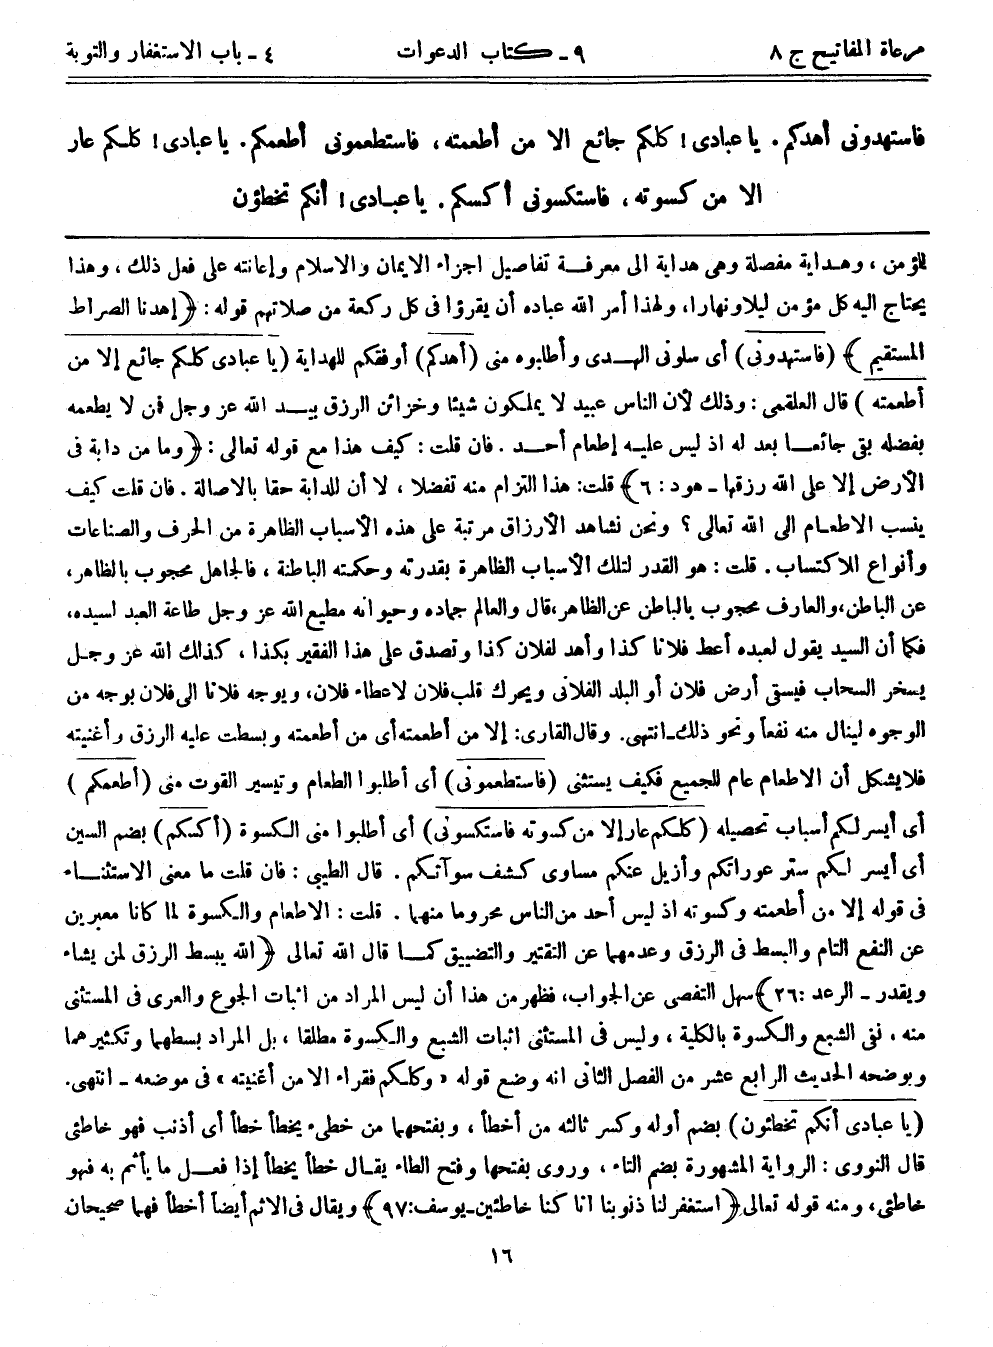 مرعاة المفاتيح ج ٨ ٩ ـ كتاب الدعوات ٤ ـ باب الاستغفار والتوبة
فاستهدونى أهدكم. يا عبادى! كلكم جائع الا من أطعمته، فاستطعمونى أطعمكم. يا عبادى! كلكم عار
الا من كسوته، فاستكسونى أكسكم. يا عبادى! أنكم تخطؤن
للؤمن، وهداية مفصلة وهى هداية الى معرفة تفاصيل اجزاء الايمان والاسلام وإعانته على فعل ذلك، وهذا
يحتاج اليه كل مؤمن ليلا ونهارا، ولهذا أمر الله عباده أن يقرؤا فى كل ركعة من صلاتهم قوله: ﴿إهدنا الصراط
المستقيم﴾ (فاستهدونى) أى سلونى الهدى وأطلبوه منى (أهدكم) أوفقكم للهداية (يا عبادى كلكم جائع إلا من
أطعمته) قال العلقمى: وذلك لأن الناس عبيد لا يملكون شيئا وخزائن الرزق بيد الله عز وجل فمن لا يطعمه
بفضله بقى جائعا بعد له اذ ليس عليه إطعام أحد. فان قلت: كيف هذا مع قوله تعالى: ﴿وما من دابة فى
الأرض إلا على الله رزقها ـ هود: ٦﴾ قلت: هذا التزام منه تفضلا، لا أن للدابة حقا بالاصالة. فان قلت كيف
ينسب الاطعام الى الله تعالى؟ ونحن نشاهد الأرزاق مرتبة على هذه الأسباب الظاهرة من الحرف والصناعات
وأنواع الاكتساب. قلت: هو القدر لتلك الأسباب الظاهرة بقدرته وحكمته الباطنة، فالجاهل محجوب بالظاهر،
عن الباطن، والعارف محجوب بالباطن عن الظاهر، قال والعالم جماده وحيوانه مطيع الله عز وجل طاعة العبد لسيده،
فكما أن السيد يقول لعبده أعط فلانا كذا وأهد لفلان كذا وتصدق على هذا الفقير بكذا، كذالك الله عز وجل
يسخر السحاب فيسقى أرض فلان أو البلد الفلانى ويحرك قلب فلان لاعطاء فلان، ويوجه فلانا الى فلان بوجه من
الوجوه لينال منه نفعاً ونحو ذلك ـ انتهى. وقال القارى: إلا من أطعمته أى من أطعمته وبسطت عليه الرزق وأغنيته
فلا يشكل أن الاطعام عام للجميع فكيف يستثنى (فاستطعمونى) أى أطلبوا الطعام وتيسير القوت منى (أطعمكم)
أى أيسر لكم أسباب تحصيله (كلكم عار إلا من كسوته فاستكسونى) أى أطلبوا منى الكسوة (أكسكم) بضم السين
أى أيسر لكم ستر عوراتكم وأزيل عنكم مساوى كشف سوآتكم. قال الطيبى: فان قلت ما معنى الاستثناء
فى قوله إلا من أطعمته وكسوته اذ ليس أحد من الناس محروما منهما. قلت: الاطعام والكسوة لما كانا معبرين
عن النفع التام والبسط فى الرزق وعدمهما عن التقتير والتضييق كما قال الله تعالى ﴿الله يبسط الرزق لمن يشاء
ويقدر ـ الرعد: ٢٦﴾ سهل التفصى عن الجواب، فظهر من هذا أن ليس المراد من اثبات الجوع والعرى فى المستثنى
منه، نفى الشبع والكسوة بالكلية، وليس فى المستثنى اثبات الشبع والكسوة مطلقا، بل المراد بسطهما وتكثيرهما
وبوضحه الحديث الرابع عشر من الفصل الثانى انه وضع قوله «وكلكم فقراء الا من أغنيته» فى موضعه ـ انتهى.
(يا عبادى أنكم تخطئون) بضم أوله وكسر ثالثه من أخطأ، وبفتحهما من خطىء يخطأ خطأ أى أذنب فهو خاطئى
قال النووى: الرواية المشهورة بضم التاء، وروى بفتحها وفتح الطاء يقال خطأ يخطأ إذا فعل ما يأثم به فهو
خاطئى، ومنه قوله تعالى ﴿استغفر لنا ذنوبنا انا كنا خاطئين ـ يوسف: ٩٧﴾ ويقال فى الاثم أيضاً أخطأ فهما صحيحان
١٦